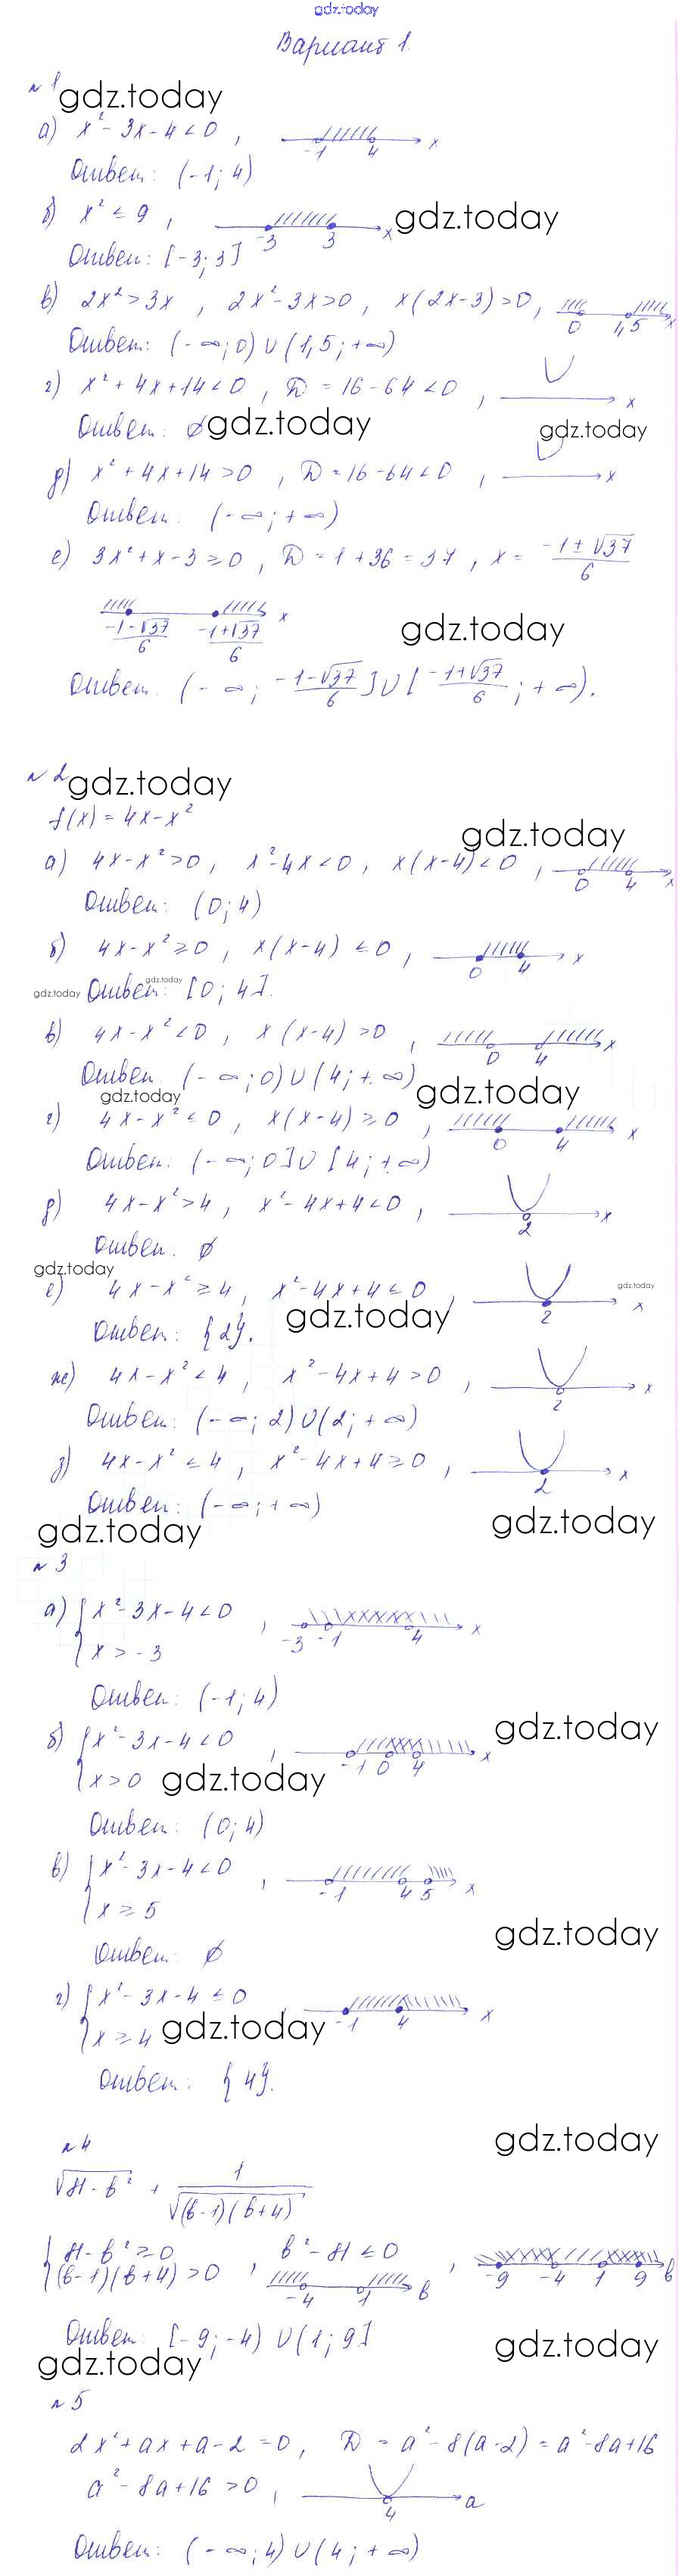 gdz.today
Вариант 1.
№ 1 gdz.today
а) x² - 3x - 4 < 0 ,
-1 4 x
Ответ: (-1; 4)
б) x² ≤ 9 ,
-3 3 x gdz.today
Ответ: [-3; 3]
в) 2x² > 3x , 2x² - 3x > 0 , x(2x-3) > 0 ,
0 1,5 x
Ответ: (-∞; 0) ∪ (1,5; +∞)
г) x² + 4x + 14 < 0 , D = 16 - 64 < 0 , x
Ответ: ∅ gdz.today
gdz.today
д) x² + 4x + 14 > 0 , D = 16 - 64 < 0 , x
Ответ: (-∞; +∞)
е) 3x² + x - 3 ≥ 0 , D = 1 + 36 = 37 , x = (-1 ± √37)/6
(-1-√37)/6 (-1+√37)/6 x
gdz.today
Ответ. (-∞; (-1-√37)/6] ∪ [(-1+√37)/6; +∞).
№ 2 gdz.today
f(x) = 4x - x²
gdz.today
а) 4x - x² > 0 , x² - 4x < 0 , x(x-4) < 0 ,
0 4 x
Ответ: (0; 4)
б) 4x - x² ≥ 0 , x(x-4) ≤ 0 ,
0 4 x
gdz.today
gdz.today Ответ: [0; 4].
в) 4x - x² < 0 , x(x-4) > 0 ,
0 4 x
Ответ: (-∞; 0) ∪ (4; +∞)
gdz.today gdz.today
г) 4x - x² ≤ 0 , x(x-4) ≥ 0 ,
0 4 x
Ответ: (-∞; 0] ∪ [4; +∞)
д) 4x - x² > 4 , x² - 4x + 4 < 0 ,
2 x
Ответ: ∅
gdz.today
е) 4x - x² ≥ 4 , x² - 4x + 4 ≤ 0 ,
gdz.today
2 x
gdz.today
Ответ: {2}.
ж) 4x - x² < 4 , x² - 4x + 4 > 0 ,
2 x
Ответ: (-∞; 2) ∪ (2; +∞)
з) 4x - x² ≤ 4 , x² - 4x + 4 ≥ 0 ,
2 x
Ответ: (-∞; +∞)
gdz.today gdz.today
№ 3
а) { x² - 3x - 4 < 0
x > -3 ,
-3 -1 4 x
Ответ: (-1; 4)
gdz.today
б) { x² - 3x - 4 < 0
x > 0 ,
-1 0 4 x
gdz.today
Ответ: (0; 4)
в) { x² - 3x - 4 < 0
x ≥ 5 ,
-1 4 5 x
gdz.today
Ответ: ∅
г) { x² - 3x - 4 ≤ 0
x ≥ 4 ,
-1 4 x
gdz.today
Ответ: {4}.
№ 4
gdz.today
√(81 - b²) + 1/√((b-1)(b+4))
{ 81 - b² ≥ 0
(b-1)(b+4) > 0 , b² - 81 ≤ 0
-4 1 b ,
-9 -4 1 9 b
Ответ: [-9; -4) ∪ (1; 9]
gdz.today gdz.today
№ 5
2x² + ax + a - 2 = 0 , D = a² - 8(a-2) = a² - 8a + 16
a² - 8a + 16 > 0 ,
4 a
Ответ: (-∞; 4) ∪ (4; +∞)